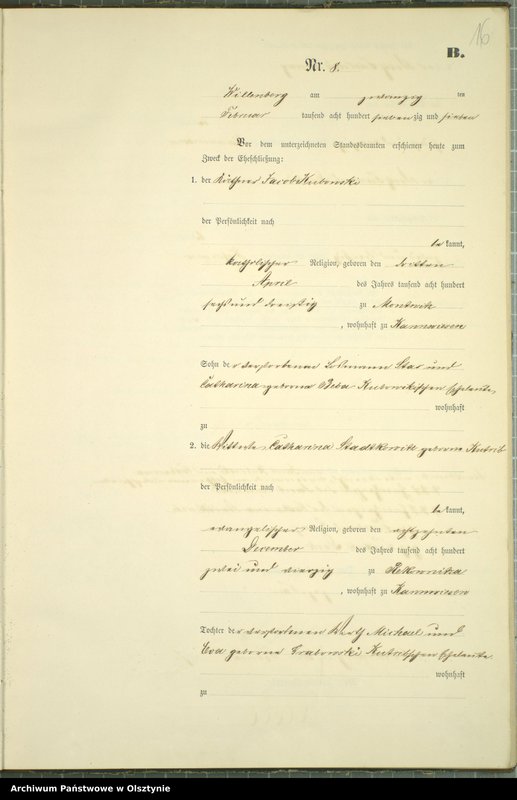 16
B.
Nr. 8.
Willenberg am zwanzig ten
Februar tausend acht hundert sieben zig und sieben
Vor dem unterzeichneten Standesbeamten erschienen heute zum
Zweck der Eheschließung:
1. der Käthner Jacob Kubowski
der Persönlichkeit nach
be kannt,
katholischer Religion, geboren den dritten
April des Jahres tausend acht hundert
sechs und dreißig zu Montwitz
, wohnhaft zu
Sohn der verstorbenen Losmann und
Catharina geborne Kubowskischen Eheleute,
wohnhaft
zu
2. die Wittwe Catharina geborne Kutrib
der Persönlichkeit nach
be kannt,
evangelischer Religion, geboren den achtzehnten
December des Jahres tausend acht hundert
zwei und vierzig zu
, wohnhaft zu
Tochter der verstorbenen Wirth Michael und
Eva geborne Grabowski Eheleute
wohnhaft
zu
Archiwum Państwowe w Olsztynie